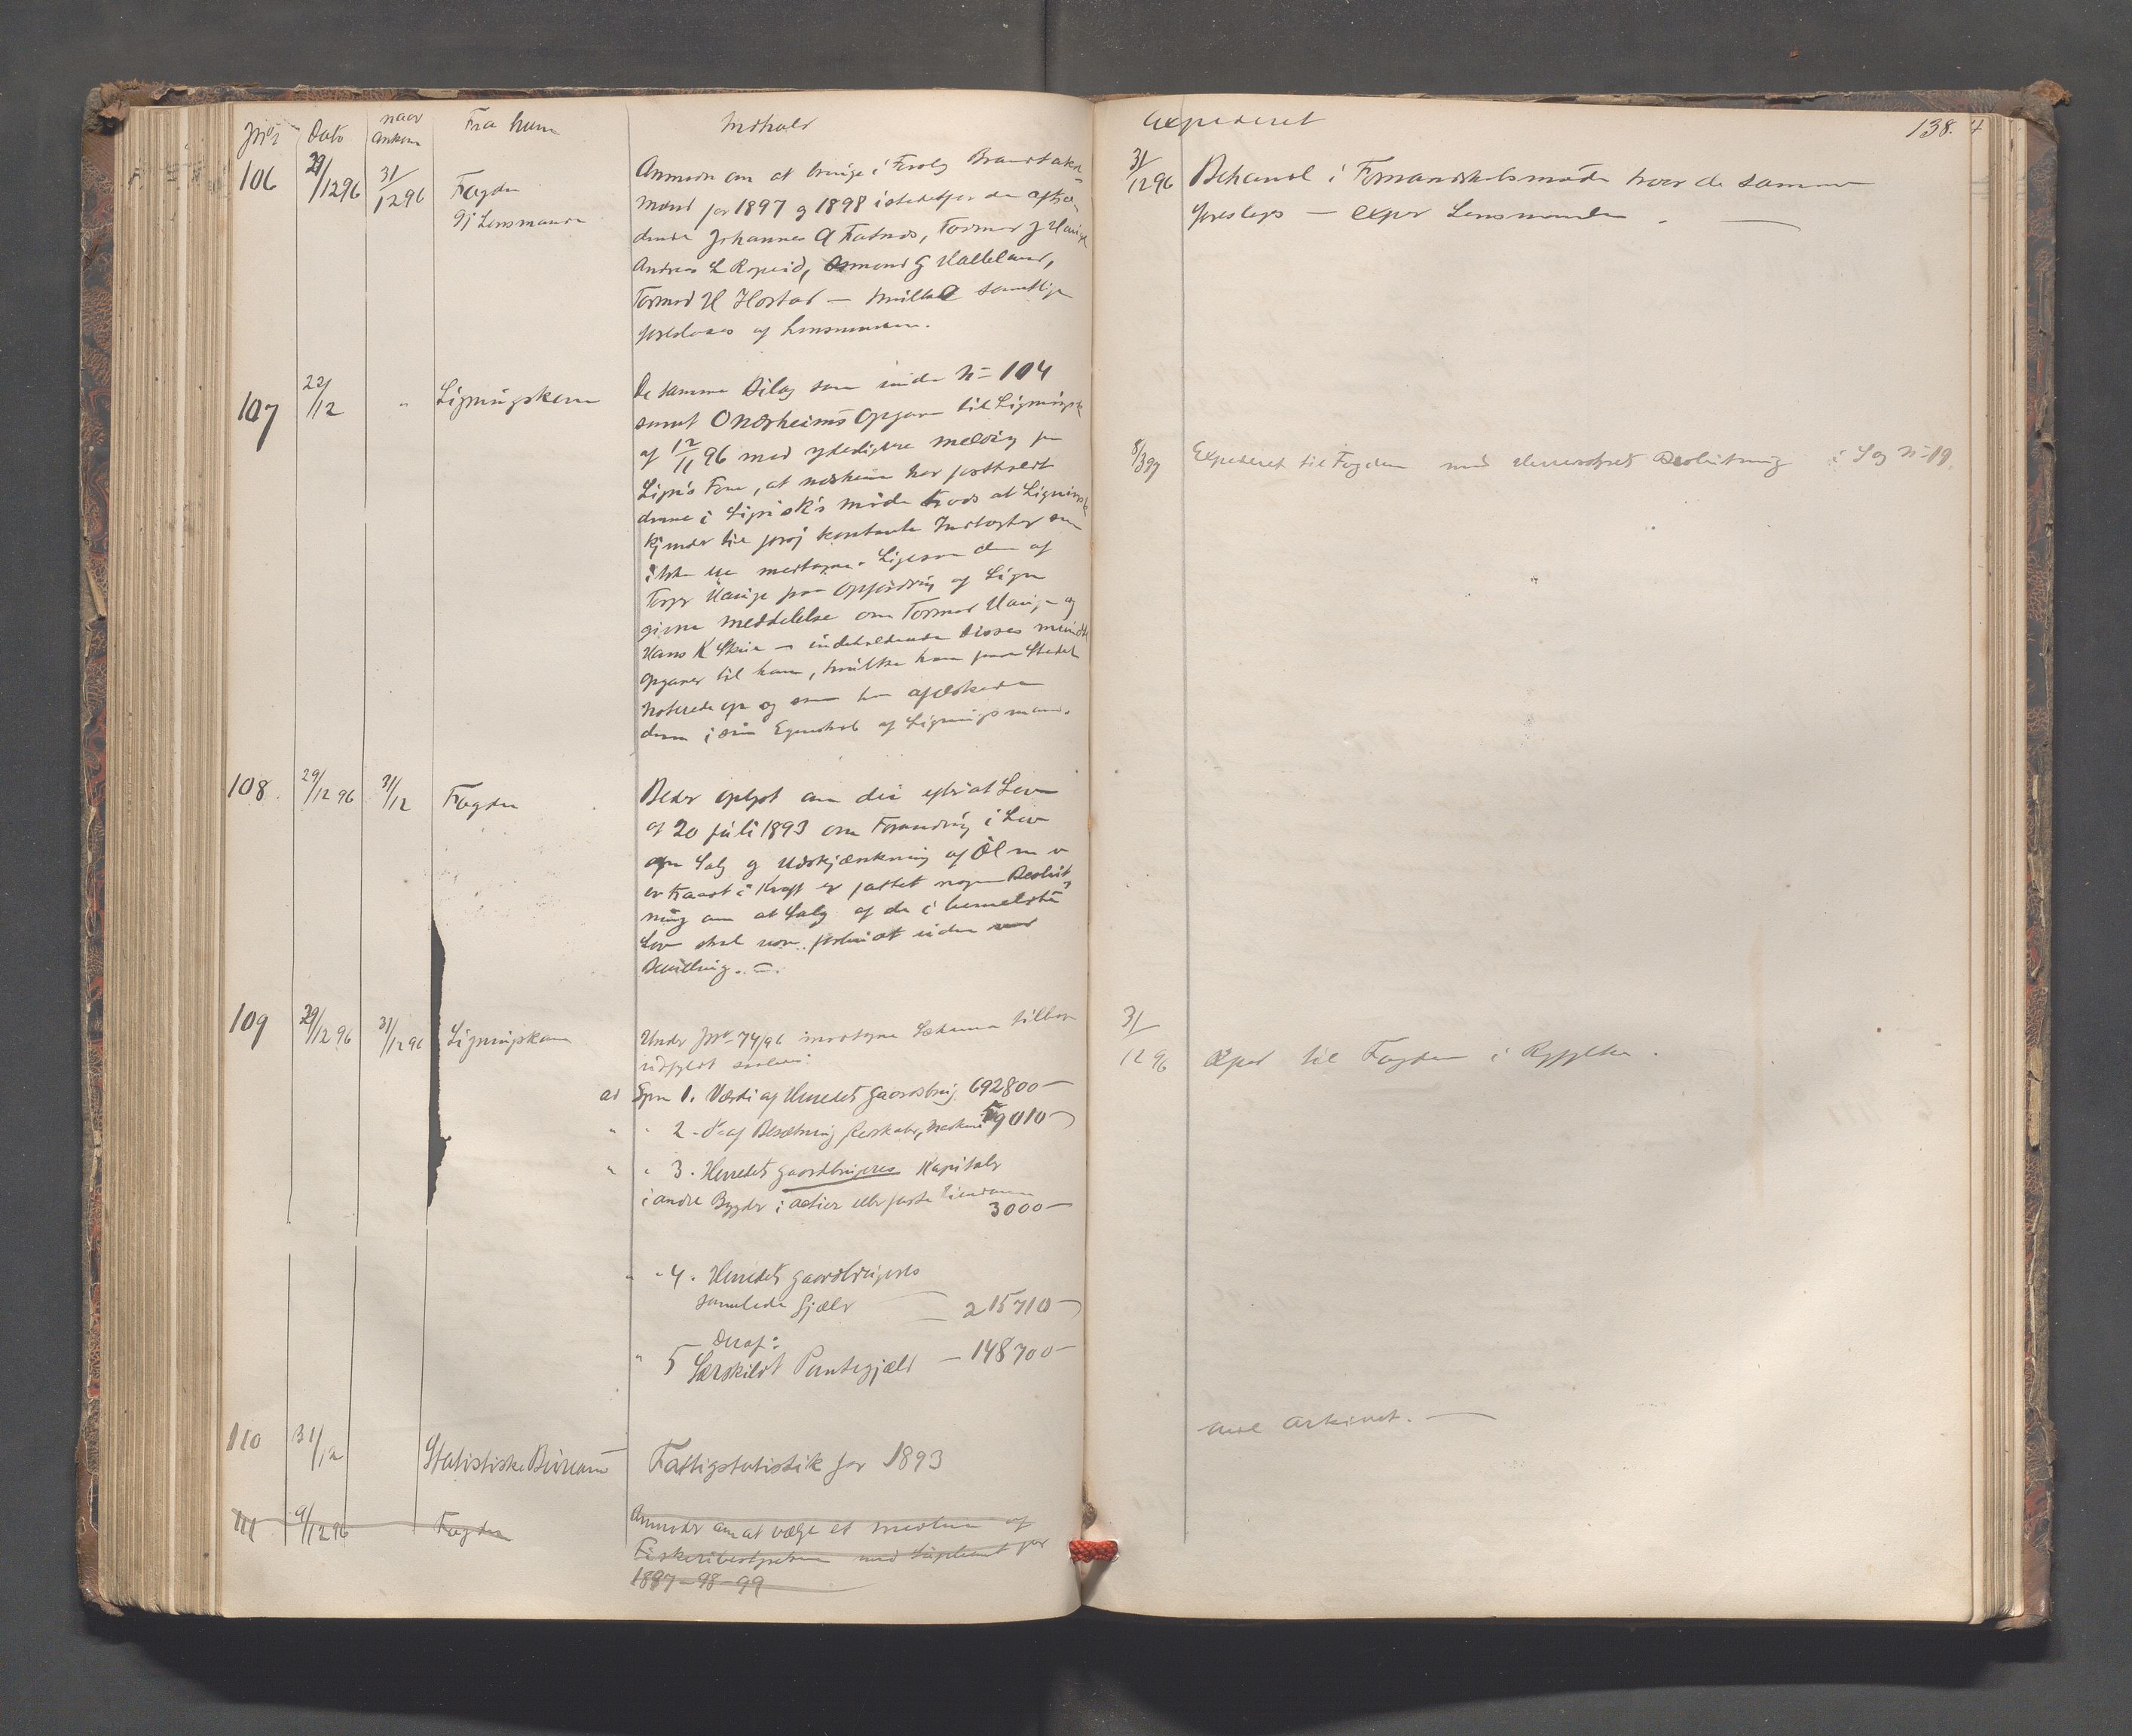 JNr Dato naar ankom Fra hvem Indhold
106 29/12 96 31/12 96 Fogden gj Lensmanden
Anmodn om at bringe i Forslag Brandtakst-
mænd for 1897 g 1898 istedetfor de aftræ-
dende Johannes A Fatnes, Tormod J Hauge
Andreas L Ropeid, Osmund G Halleland,
Tormod H Hostad — hvilke samtlige
foreslaaes af Lensmanden.
107 22/12 " Ligningskom
De samme Bilag som under No 104
samt O Næsheims Opgave til Ligningsk
af 12/11 96 med yderligere melding fra
Lign's Form, at Næsheim har fastholdt
denne i Lign's K's møde trods at Lignings
kjender til kontante Indtægter som
ikke er medtagne. Ligesom den af
Hauge paa Opfordring af Lign
givne meddelelse om Tormod Hauge og
Hans K — indeholdende disses mundtl
Opgaver til ham, hvilke han paa Stedet
noterede op og som han
dem i sin Egenskab af Ligningsmand.
108 29/12 96 31/12 Fogden
Beder oplyst om der efterat Lov
af 20 juli 1893 om Forandring i Lov
om Salg g Udskjænkning af Öl m v
er traadt i Kraft er fattet nogen Beslut-
ning om at Salg af de i bemeldte
Lov skal være forbudt uden
Bevilling. —
109 29/12 96 31/12 96 Ligningskom
Under JNr 74/96 indtagne Skema tilbage
udfyldt saaledes:
ad Spm 1. Værdi af Herredets Gaardsbrug 692800 —
" " 2 - do af Besætning Redskaber, Maskiner 9010 —
" " 3. Herredets gaardbrugeres Kapitaler
i andre Bygder i actier eller faste Eiendomme
3000 —
" " 4. Herredets gaardbrugeres
samlede Gjæld — 215710 —
Deraf:
" 5 Særskildt Pantegjæld — 148700 —
110 31/12 Statistiske Büreau Fattigstatistik for 1893
111 9/12 96 Fogden
Anmoder om at vælge et medlem af
Fiskeribestyrelsen med Suppleant for
1897 – 98 – 99
Expederet
138.
31/12 96 Behandl i Formandskabsmøde hvor de samme
foresloges — exper Lensmanden. —
8/3 97 Expederet til Fogden med Herredsstyrets Beslutning i Sag No 19.
31/12 96 Exped til Fogden i Ryfylke.
ved Arkivet. —